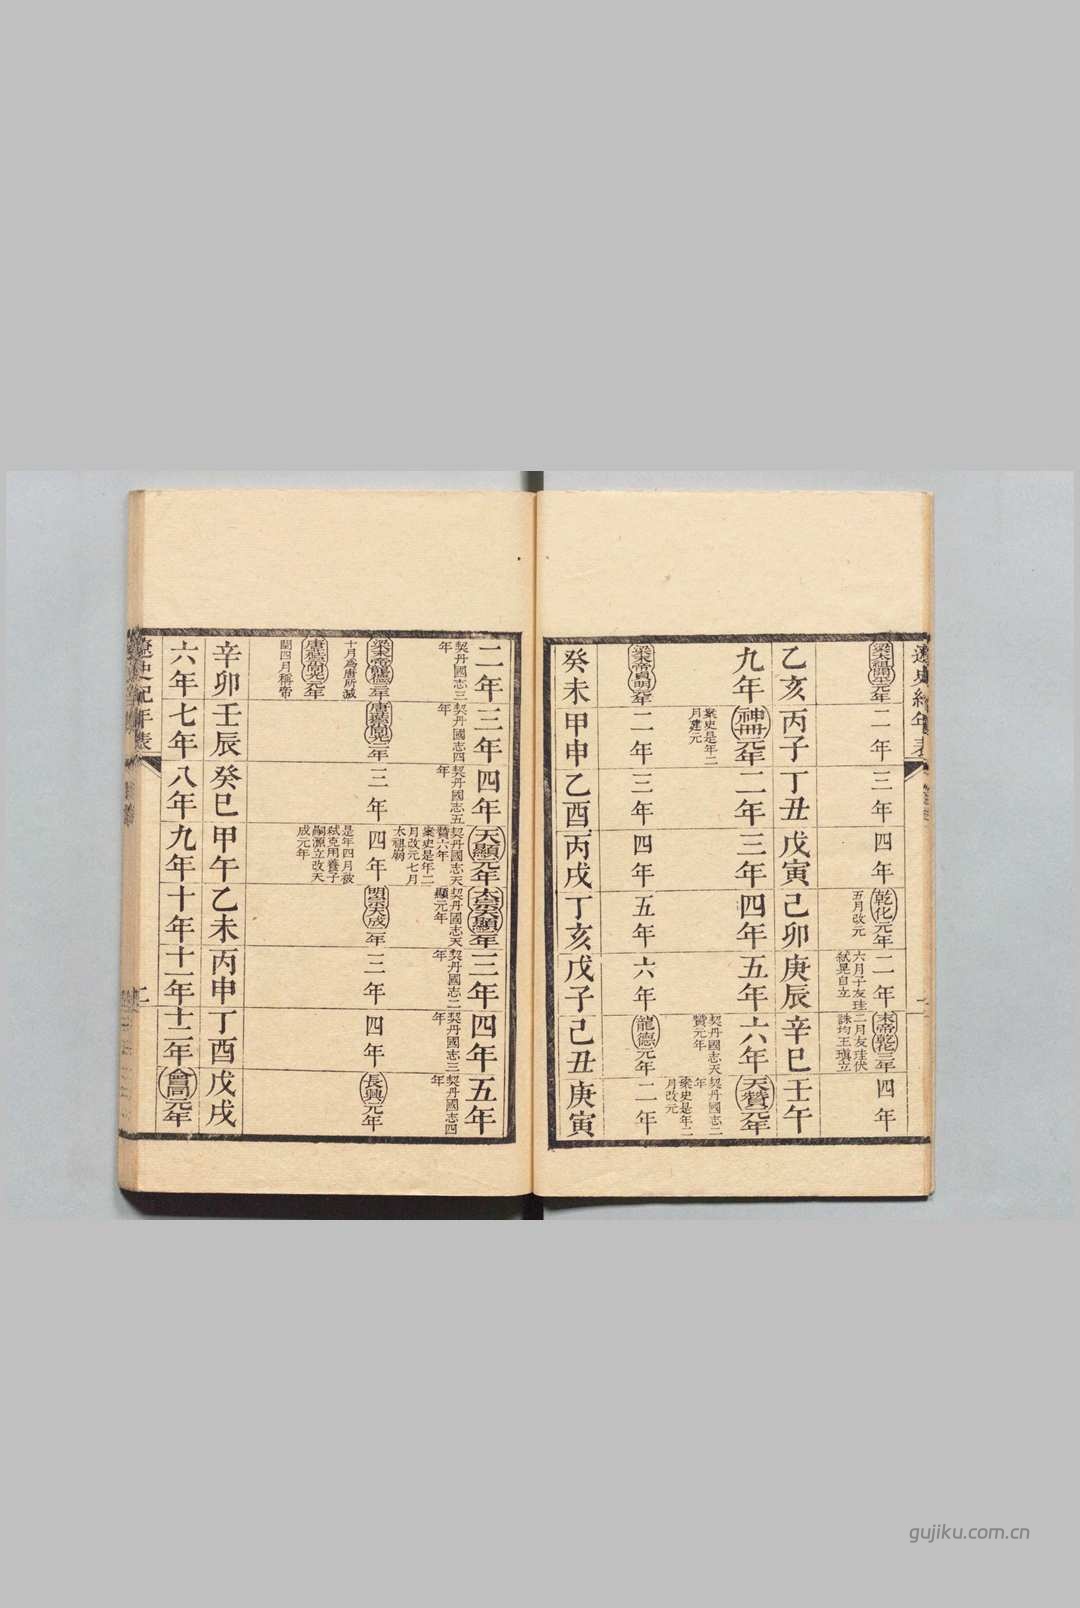 遼史紀年表
梁太祖開平元年
二年
三年
四年
乾化元年
五月改元
二年
六月子友珪
弒晃自立
末帝乾化三年
二月友珪伏
誅均王瑱立
四年
乙亥
丙子
丁丑
戊寅
己卯
庚辰
辛巳
壬午
九年
神冊元年
二年
三年
四年
五年
六年
天贊元年
案史是年二
月建元
契丹國志天
贊元年
契丹國志二
年
案史是年二
月改元
梁末帝貞明元年
二年
三年
四年
五年
六年
龍德元年
二年
癸未
甲申
乙酉
丙戌
丁亥
戊子
己丑
庚寅
二年
契丹國志三
年
三年
契丹國志四
年
四年
契丹國志五
年
天顯元年
契丹國志天
贊六年
案史是年二
月改元七月
太祖崩
太宗天顯二年
契丹國志天
顯元年
三年
契丹國志二
年
四年
契丹國志三
年
五年
契丹國志四
年
梁末帝龍德三年
十月為唐所滅
唐莊宗同光元年
閏四月稱帝
唐莊宗同光二年
三年
四年
是年四月被
弒克用養子
嗣源立改天
成元年
明宗天成二年
三年
四年
長興元年
辛卯
壬辰
癸巳
甲午
乙未
丙申
丁酉
戊戌
六年
七年
八年
九年
十年
十一年
十二年
會同元年
遼史紀年表
二
gujiku.com.cn